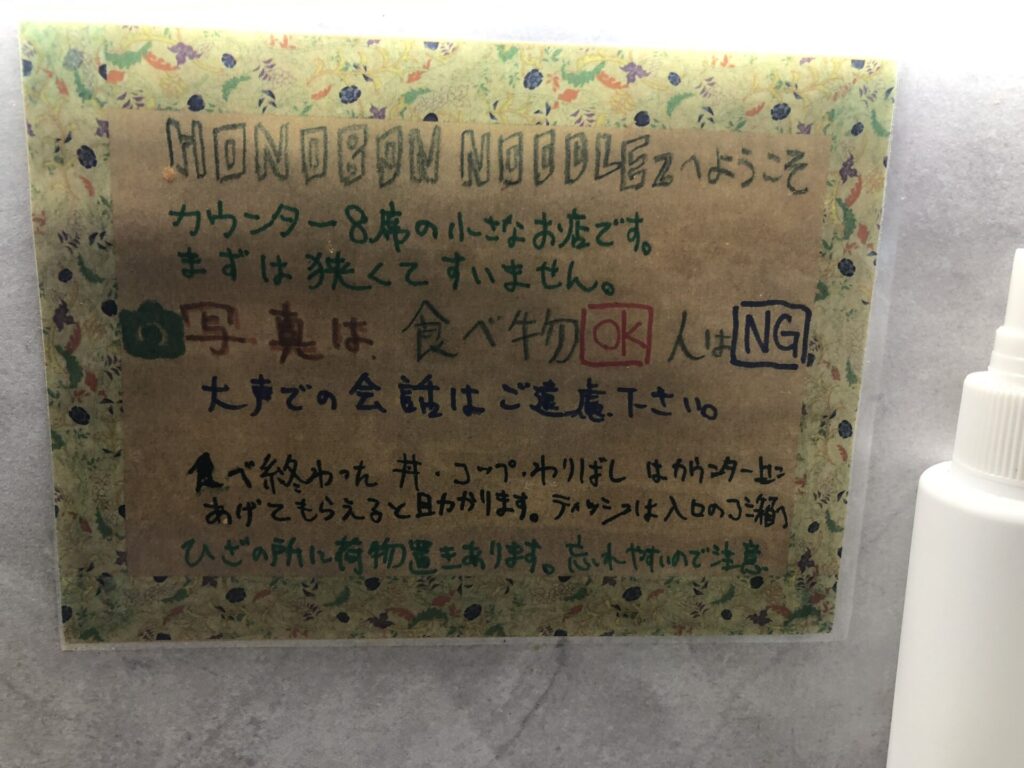 HONOBONNOODLEZへようこそ
カウンター8席の小さなお店です。
まずは狭くてすいません。
写真は食べ物OK 人はNG
大声での会話はご遠慮下さい。
食べ終わった丼・コップ・わりばしはカウンター上に
あげてもらえると助かります。ティッシュは入口のゴミ箱へ
ひざの所に荷物置きあります。忘れやすいので注意